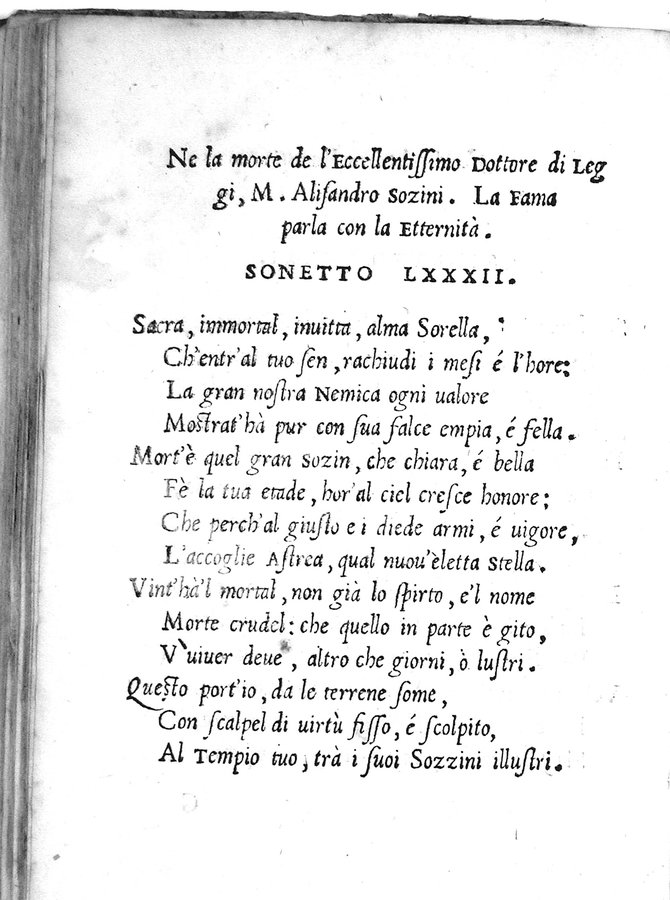 Ne la morte de l'Eccellentissimo Dottore di Leg
gi, M. Alisandro Sozini. La Fama
parla con la Etternità.
SONETTO LXXXII.
Sacra, immortal, inuitta, alma Sorella,
Ch'entr'al tuo sen, rachiudi i mesi é l'hore;
La gran nostra Nemica ogni ualore
Mostrat'hà pur con sua falce empia, é fella.
Mort'è quel gran Sozin, che chiara, é bella
Fè la tua etade, hor'al ciel cresce honore;
Che perch'al giusto ei diede armi, é uigore,
L'accoglie Astrea, qual nuou'èletta Stella.
Vint'hà'l mortal, non già lo spirto, e'l nome
Morte crudel: che quello in parte è gito,
V'uiuer deue, altro che giorni, ò lustri.
Questo port'io, da le terrene some,
Con scalpel di uirtù fisso, é scolpito,
Al Tempio tuo, trà i suoi Sozzini illustri.